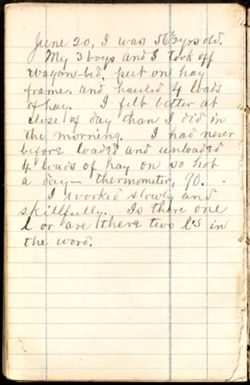 June 20, I was 56 yrs old.
My 3 boys and I took off
wagon-bed, put on hay
frame and hauled 4 loads
of hay. I felt better at
close of day than I did in
the morning. I had never
before loaded and unloaded
4 loads of hay on so hot
a day — thermometer, 90.
I worked slowly and
skillfully. Is there one
l or are there two l's in
the word.